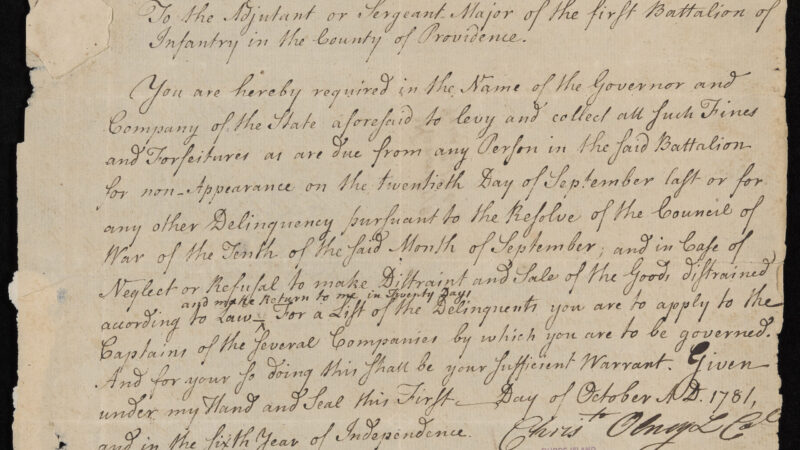 To the Adjutant or Sergeant Major of the first Battalion of
Infantry in the County of Providence.
You are hereby required in the Name of the Governor and
Company of the State aforesaid to levy and collect all such Fines
and Forfeitures as are due from any Person in the said Battalion
for non-Appearance on the twentieth Day of September last or for
any other Delinquency pursuant to the Resolve of the Council of
War of the Tenth of the said Month of September; and in Case of
Neglect or Refusal to make Distraint and Sale of the Goods distrained
and make Return to me in Twenty Days
according to Law - For a List of the Delinquents you are to apply to the
Captains of the several Companies by which you are to be governed.
And for your so doing this shall be your sufficient Warrant. Given
under my Hand and Seal this First Day of October A.D. 1781,
and in the sixth Year of Independence. Christr Olney L Col